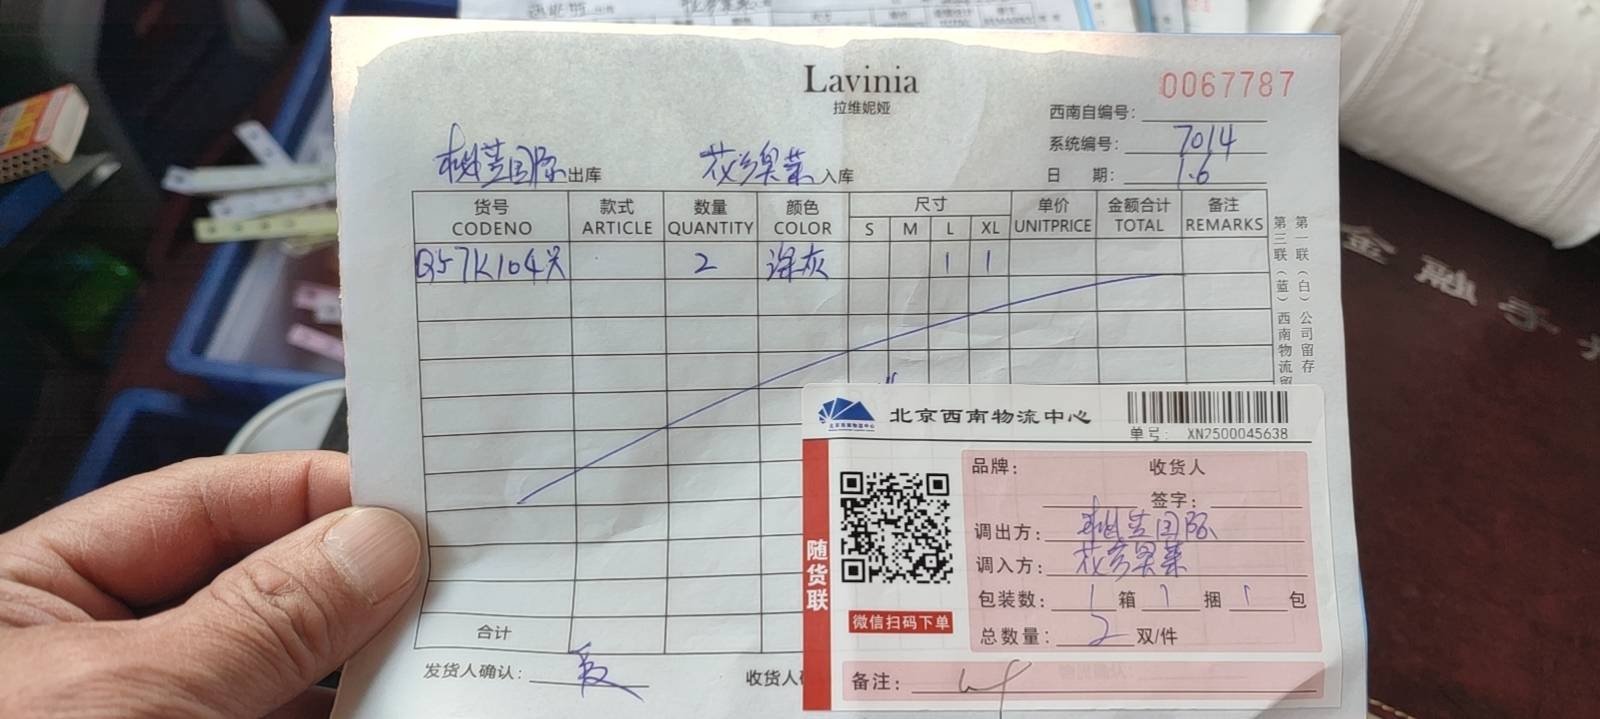 Lavinia
拉维妮娅
0067787
西南自编号:
系统编号: 7014
日 期: 1.6
国际出库 花乡奥莱入库
货号 款式 数量 颜色 尺寸 单价 金额合计 备注
CODENO ARTICLE QUANTITY COLOR S M L XL UNITPRICE TOTAL REMARKS
2 深灰 1 1
合计
发货人确认:
收货人
第一联(白)公司留存
第三联(蓝)西南物流留
北京西南物流中心
单号: XN2500045638
品牌: 收货人
签字:
调出方: 国际
调入方: 花乡奥莱
包装数: 1 箱 1 捆 1 包
总数量: 2 双/件
备注:
随货联
微信扫码下单
金融手